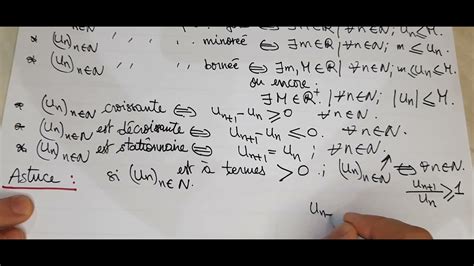 * (Un)n∈N " " majorée ⇔ ∃M∈R | ∀n∈N; Un ≤ M.
* (Un)n∈N " " minorée ⇔ ∃m∈R | ∀n∈N; m ≤ Un.
* (Un)n∈N " " bornée ⇔ ∃m,M∈R | ∀n∈N; m ≤ Un ≤ M.
ou encore:
∃M∈R⁺ | ∀n∈N; |Un| ≤ M.
* (Un)n∈N croissante ⇔ Un+1 - Un ≥ 0 ∀n∈N.
* (Un)n∈N est décroissante ⇔ Un+1 - Un ≤ 0. ∀n∈N.
* (Un)n∈N est stationnaire ⇔ Un+1 = Un ; ∀n∈N.
Astuce : si (Un)n∈N est à termes > 0 ; (Un)n∈N ↗ ⇔ ∀n∈N
Un+1/Un ≥ 1
Un